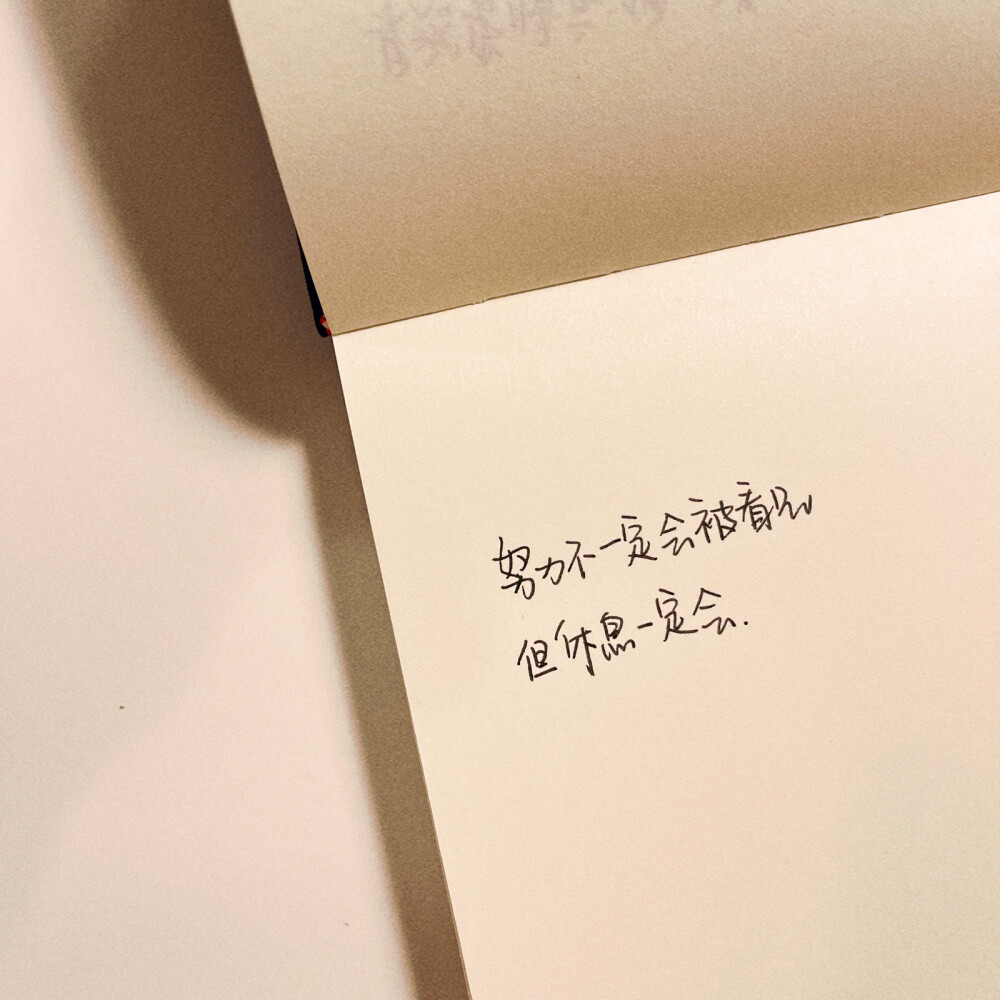 努力不一定会被看见
但休息一定会.